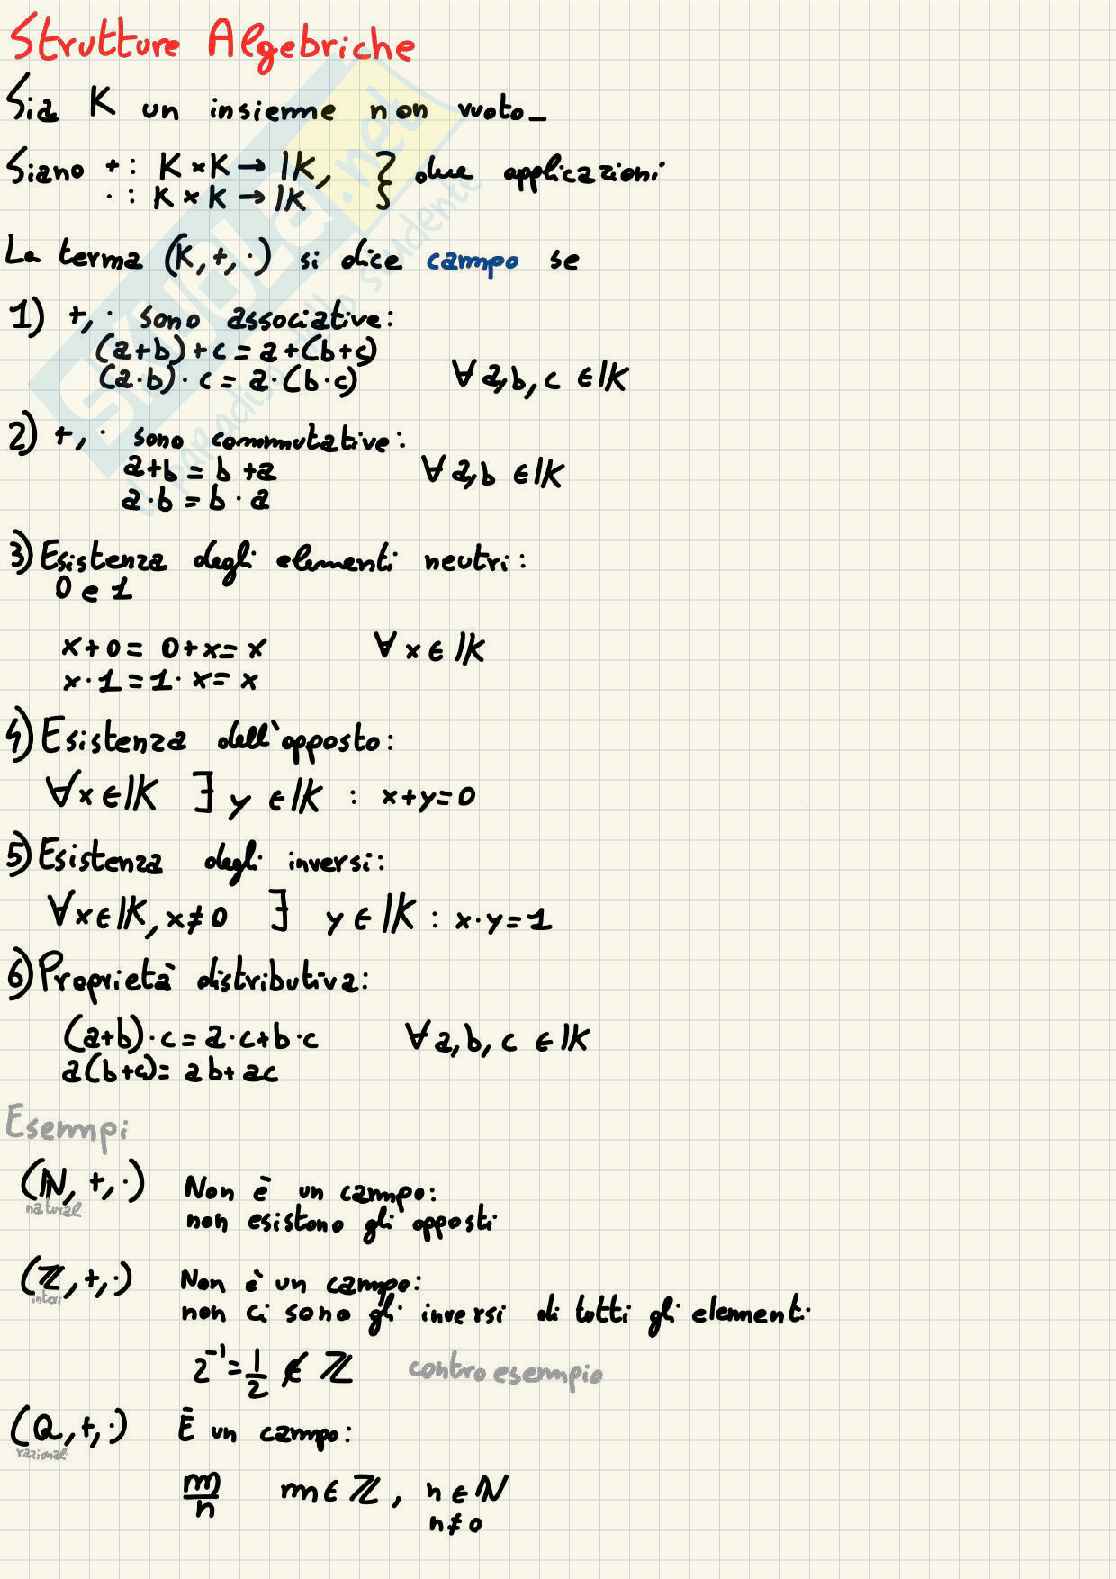 Strutture Algebriche
Sia K un insieme non vuoto_
Siano + : K × K → K, } due applicazioni
· : K × K → K
La terma (K, +, ·) si dice campo se
1) +, · sono associative:
(a+b)+c = a+(b+c)
(a·b)·c = a·(b·c) ∀ a,b,c ∈ K
2) +, · sono commutative:
a+b = b+a ∀ a,b ∈ K
a·b = b·a
3) Esistenza degli elementi neutri:
0 e 1
x+0 = 0+x = x ∀ x ∈ K
x·1 = 1·x = x
4) Esistenza dell'opposto:
∀x ∈ K ∃ y ∈ K : x+y=0
5) Esistenza degli inversi:
∀x ∈ K, x≠0 ∃ y ∈ K : x·y=1
6) Proprietà distributiva:
(a+b)·c = a·c+b·c ∀ a,b,c ∈ K
a(b+c) = ab+ac
Esempi
(ℕ, +, ·) Non è un campo:
naturali non esistono gli opposti
(ℤ, +, ·) Non è un campo:
interi non ci sono gli inversi di tutti gli elementi
2⁻¹ = 1/2 ∉ ℤ controesempio
(Q, +, ·) È un campo:
razionali
m/n m ∈ ℤ, n ∈ ℕ
n≠0
SKUOLA.net